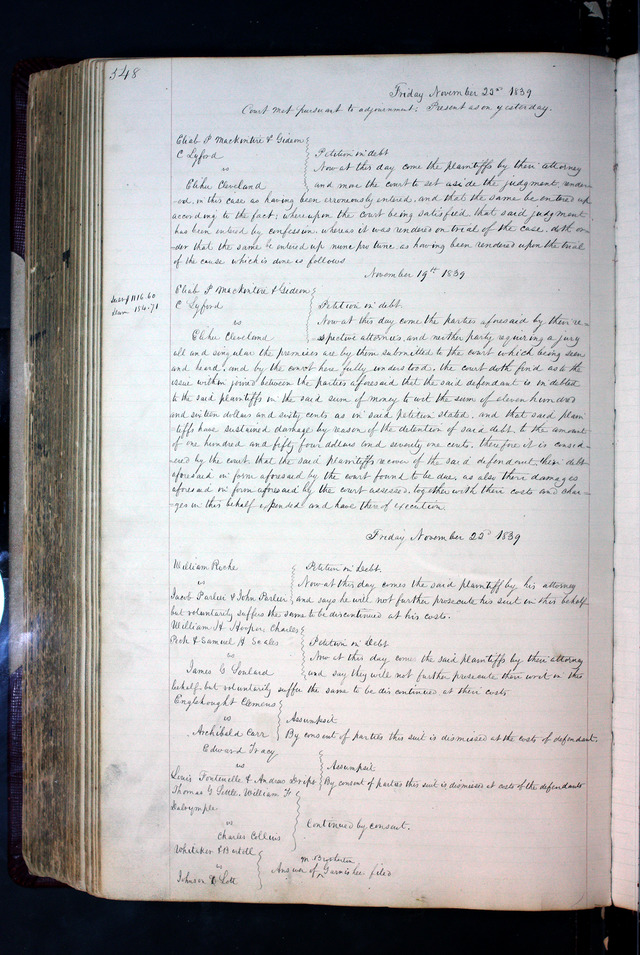 348
Friday November 22d 1839
Court met pursuant to adjournment; Present as on yesterday.
Eliab P Mackintire & Gideon
C Lyford Petition in debt
vs Now at this day come the plaintiffs by their attorney
Elihu Cleveland and move the court to set aside the judgment render-
-ed, in this case as having been erroneously entered, and that the same be entered up
according to the fact; whereupon the court being satisfied that said judgment
has been entered by confession whereas it was rendered on trial of the case, doth or-
der that the same be entered up nunc pro tunc as having been rendered upon the trial
of the cause which is done as follows
November 19th 1839
Eliab P Mackintire & Gideon
Debt $1116.60
C Lyford Petition in debt,
Dam 154.71
vs Now at this day come the parties aforesaid by their re-
Elihu Cleveland -spective attornies, and neither party requiring a jury
all and singular the premises are by them submitted to the court which being seen
and heard, and by the court here fully understood, the court doth find as to the
issue within joined between the parties aforesaid that the said defendant is indebted
to the said plaintiffs in the said sum of money to wit the sum of eleven hundred
and sixteen dollars and sixty cents as in said petition stated, and that said plain
tiffs have sustained damage by reason of the detention of said debt, to the amount
of one hundred and fifty four dollars and seventy one cents, therefore it is consid-
ered by the court that the said plaintiffs recover of the said defendant, their debt
aforesaid in form aforesaid by the court found to be due, as also their damages
aforesaid in form aforesaid by the court assessed, together with their costs and char-
-ges in this behalf expended and have thereof execution
Friday November 22d 1839
William Roche Petition in Debt.
vs Now at this day comes the said plaintiff by his attorney
Jacob Parlier & John Parlier and says he will not further prosecute his suit in this behalf
but voluntarily suffers the same to be discontinued at his costs.
William H Hooper, Charles
Pook & Samuel H Scales Petition in Debt
vs Now at this day come the said plaintiffs by their attorney
James G Soulard and say they will not further prosecute their writ in this
behalf, but voluntarily suffer the same to be discontinued at their costs
Englehought Clemens
vs Assumpsit
Archibald Carr By consent of parties this suit is dismissed at the costs of defendant.
Edward Tracy
vs Assumpsit
Louis Fontenelle & Andrew Drips By consent of parties this suit is dismissed at costs of the defendants
Thomas G Settle, William F.
Dalrymple
vs Continued by consent.
Charles Collins
Whitaker &
vs Answer of Garnishee filed
Johnson & Lott